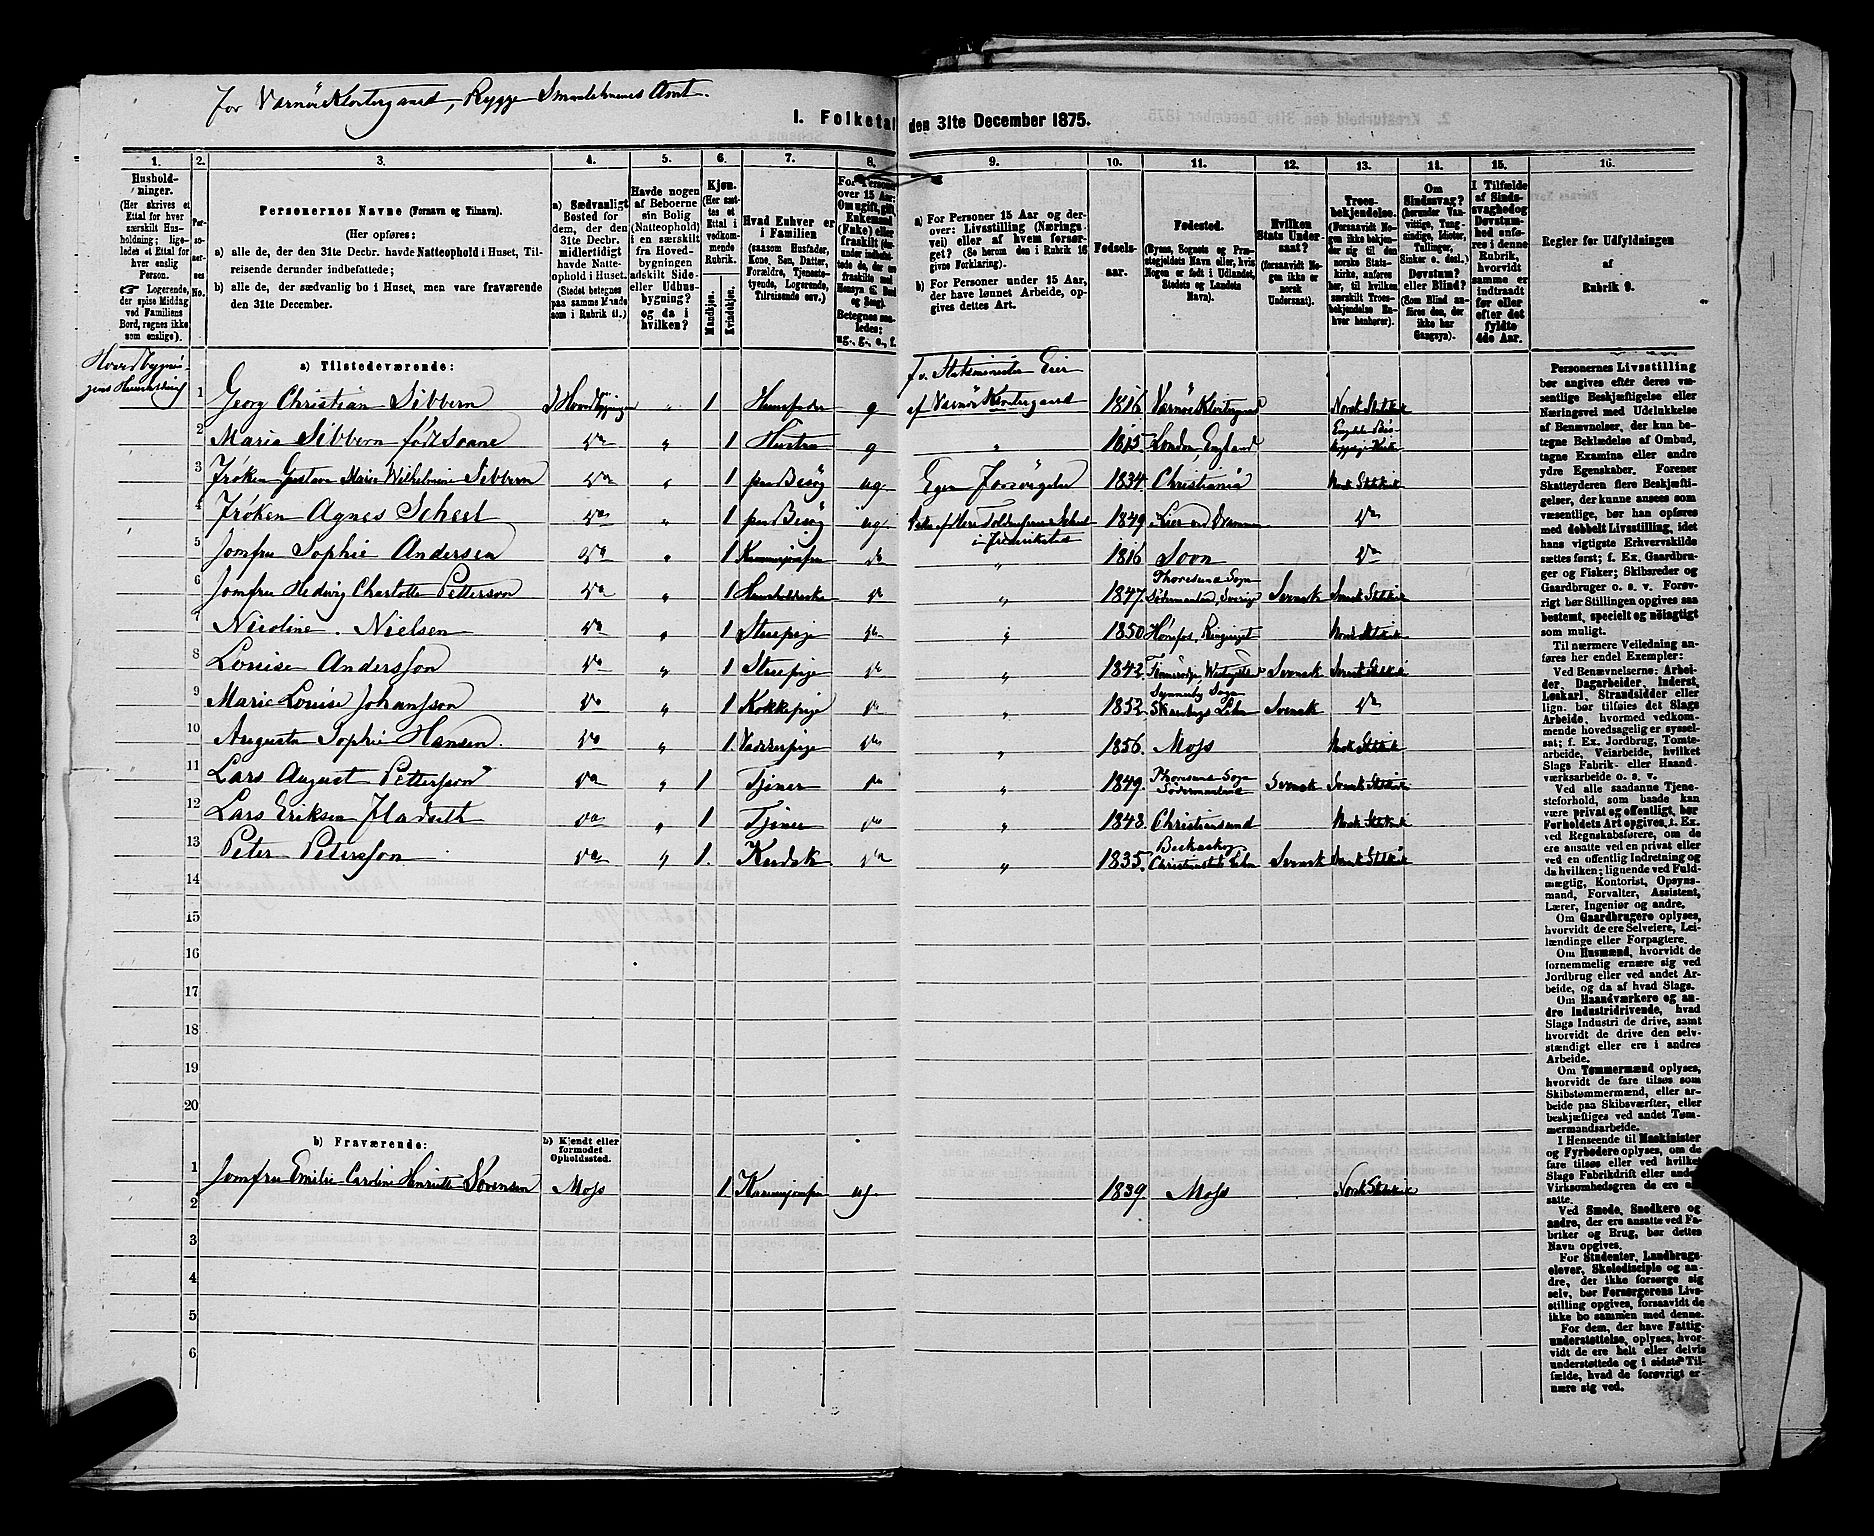 for Værnøe Klostergaard, Rygge Smaalehnenes Amt.
I. Folketal den 31te December 1875.
1. 2. 3. 4. 5. 6. 7. 8. 9. 10. 11. 12. 13. 14. 15. 16.
Hushold-
ninger.
(Her skrives et
Ettal for hver
særskilt Hus-
holdning; lige-
ledes et Ettal for
hver enslig
Person.
☞ Logerende,
der spise Middag
ved Familiens
Bord, regnes ikke
som enslige).
Per-
so-
ner-
nes
No.
Personernes Navne (Fornavn og Tilnavn).
(Her opføres;
a) alle de, der den 31te Decbr. havde Natteophold i Huset, Til-
reisende derunder indbefattede;
b) alle de, der sædvanlig bo i Huset, men vare fraværende
den 31te December.
a) Sædvanligt
Bosted for
dem, der den
31te Decbr.
midlertidigt
havde Natte-
ophold i Huset.
(Stedet betegnes
paa samme Maade
som i Rubrik 11.)
Havde nogen
af Beboerne
sin Bolig
(Natteophold)
i en særskilt
fra Hoved-
bygningen
adskilt Side-
eller Udhus-
bygning?
og da i
hvilken?
Kjøn.
(Her sæt-
tes et
Ettal i
vedkom-
mende
Rubrik.
Mandkjøn.
Kvindekjøn.
Hvad Enhver er
i Familien
(saasom Husfader,
Kone, Søn, Datter,
Forældre, Tjeneste-
tyende, Logerende,
Tilreisende osv.)
For Personer
over 15 Aar:
Om ugift, gift,
Enkemand
(Enke) eller
fraskilt
Betegnes saa-
ledes:
ug., g., e., f.
a) For Personer 15 Aar og der-
over: Livsstilling (Nærings-
vei) eller af hvem forsør-
get? (Se herom den i Rubrik 16
givne Forklaring).
b) For Personer under 15 Aar,
der have lønnet Arbeide, op-
gives dettes Art.
Fødsels-
aar.
Fødested.
(Byens, Sognets og Præ-
stegjeldets Navn eller, hvis
Nogen er født i Udlandet,
Stedets og Landets
Navn).
Hvilken
Stats Under-
saat?
(forsaavidt No-
gen ikke er
norsk
Undersaat).
Troes-
bekjendelse.
(Forsaavidt No-
gen ikke bekjen-
der sig til den
norske Stats-
kirke, anføres
her, til hvilken
særskilt Troes-
bekjendelse En-
hver henhører).
Om
Sindssvag?
(herunder Van-
vittige, Tung-
sindige, Idioter,
Tullinger,
Sinker o. desl.)
Døvstum?
eller Blind?
(Som Blind an-
føres den, der
ikke har
Gangsyn).
I Tilfælde
af Sinds-
svaghed og
Døvstum-
hed anfø-
res i denne
Rubrik,
hvorvidt
samme er
indtraadt
før eller
efter det
fyldte
4de Aar.
Regler for Udfyldningen
af
Rubrik 9.
a) Tilstedeværende:
fv. Statsminister Eier
1 Georg Christian Sibbern I Hovedbygningen „ 1 Huusfader g af Værnøe Klostergaard 1816 Værnøe Klostergaard Norsk Statskirk
2 Maria Sibbern født Soane Do „ 1 Hustru g „ 1815 London, England
3 Frøken Gustava Maria Wilhelmine Sibbern Do „ 1 paa Besøg ug Egen Formue 1834 Christiania Norsk Statskirk
4 Frøken Agnes Scheel Do „ 1 paa Besøg ug 1849 Lier ved Drammen Do
i Frederikstad
5 Jomfru Sophie Andersen Do „ 1 Kammerjomfru do „ 1816 Soon Do
Thoresund Sogn
6 Jomfru Hedvig Charlotte Petterson Do „ 1 Huusholderske do „ 1847 Södermanland, Sverige Svensk Svensk Statskirk
7 Nicoline Nielsen Do „ 1 Stuepige do „ 1850 Hønefos, Ringeriget Norsk Statskirk
8 Louise Andersson Do „ 1 Stuepige do „ 1842 Svensk Svensk Statskirk
9 Marie Louise Johansson Do „ 1 Kokkepige do „ 1852 Skaraborgs Lehn Svensk Do
10 Augusta Sophie Hansen. Do „ 1. Vadskerpige do „ 1856. Moss Norsk Statskirk
Thoresund Sogn
11 Lars August Pettersson Do „ 1 Tjener do „ 1849. Södermanland Svensk Svensk Statskirk
12 Lars Eriksen Do „ 1 Tjener do „ 1848. Christiansund Norsk Statskirk
13 Peter Petersson Do „ 1. Kudsk do „ 1835. Christianstads Lehn Svensk Svensk Statskirk
14
15
16
17
18
19
20
b) Fraværende:
b) Kjendt eller
formodet
Opholdssted.
1 Jomfru Emilie Caroline Henriette Sörensen Moss 1 Kammerjomfru ug. 1839. Moss Norsk Statskirk
2
3
4
5
6
Personernes Livsstilling
bør angives efter deres væ-
sentlige Beskjæftigelse eller
Næringsvei med Udelukkelse
af Benævnelser, der kun be-
tegne Beklædelse af Ombud,
tagne Examina eller andre
ydre Egenskaber. Forener
Skatteyderen flere Beskjæfti-
gelser, der kunne ansees som
væsentlige, bør han opføres
med dobbelt Livsstilling, idet
hans vigtigste Erhvervskilde
sættes først; f. Ex. Gaardbru-
ger og Fisker; Skibsreder og
Gaardbruger o. s. v. Forøv-
rigt bør Stillingen opgives saa
bestemt, specielt og nöiagtigt
som muligt.
Til nærmere Veiledning an-
føres her endel Exempler:
Ved Benævnelserne: Arbei-
der, Dagarbeider, Inderst,
Løskarl, Strandsidder eller
lign. bør tilføies det Slags
Arbeide, hvormed vedkom-
mende hovedsagelig er syssel-
sat; f. Ex. Jordbrug, Tomte-
arbeide, Veiarbeide, hvilket
Slags Fabrik- eller Haand-
værksarbeide o. s. v.
Ved alle saadanne Tjene-
steforhold, som baade kan
være privat og offentligt, bør
Forholdets Art opgives, f. Ex.
ved Regnskabsførere, om de
ere ansatte ved en privat eller
ved en offentlig Indretning og
da hvilken; lignende ved Fuld-
mægtig, Kontorist, Opsyns-
mand, Forvalter, Assistent,
Lærer, Ingeniør og andre.
Om Gaardbrugere oplyses,
hvorvidt de ere Selveiere, Lei-
lændinge eller Forpagtere.
Om Husmænd, hvorvidt de
fornemmelig ernære sig ved
Jordbrug eller ved andet Ar-
beide, og da af hvad Slags.
Om Haandværkere og an-
dre Industridrivende, hvad
Slags Industri de drive, samt
hvorvidt de drive den selv-
stændigt eller ere i andres
Arbeide.
Om Tømmermænd oplyses,
hvorvidt de fare tilsøs som
Skibstømmermænd, eller ar-
beide paa Skibsværfter, eller
beskjæftiges ved andet Tøm-
mermandsarbeide.
I Henseende til Maskinister
og Fyrbødere oplyses, om de
fare tilsøs eller ved hvilket
Slags Fabrikdrift eller anden
Virksomhedsgren de ere an-
satte.
Ved Smede, Snedkere og
andre, der ere ansatte ved Fa-
briker og Brug, bør dettes
Navn opgives.
For Studenter, Landbrugs-
elever, Skoledisciple og an-
dre, der ikke forsørge sig
selv, bør Forsørgerens Livs-
stilling opgives, forsaavidt de
ikke bo sammen med denne.
For dem, der have Fattig-
understøttelse, oplyses, hvor-
vidt de ere helt eller delvis
understøttede og i sidste Til-
fælde, hvad de forøvrigt er-
nære sig ved.